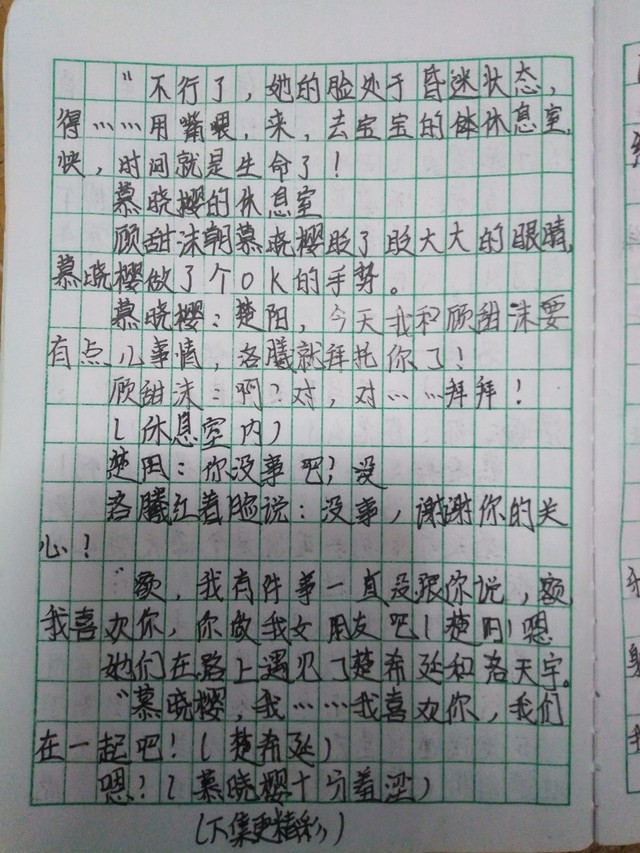 “不行了，她的脸处于昏迷状态，
得……用嘴喂，来，去宝宝的体休息室，
快，时间就是生命了！
慕晓樱的休息室
顾甜沫朝慕晓樱眨了眨大大的眼睛，
慕晓樱做了个OK的手势。
慕晓樱：楚阳，今天我和顾甜沫要
有点儿事情，洛曦就拜托你了！
顾甜沫：啊？对，对……拜拜！
（休息室内）
楚阳：你没事吧？没
洛曦红着脸说：没事，谢谢你的关
心！
“额，我有件事一直没跟你说，额，
我喜欢你，你做我女朋友吧（楚阳）嗯
她们在路上遇见了楚希延和洛天宇。
“慕晓樱，我……我喜欢你，我们
在一起吧！（楚希延）
嗯？（慕晓樱十分羞涩）
（下集更精彩》）